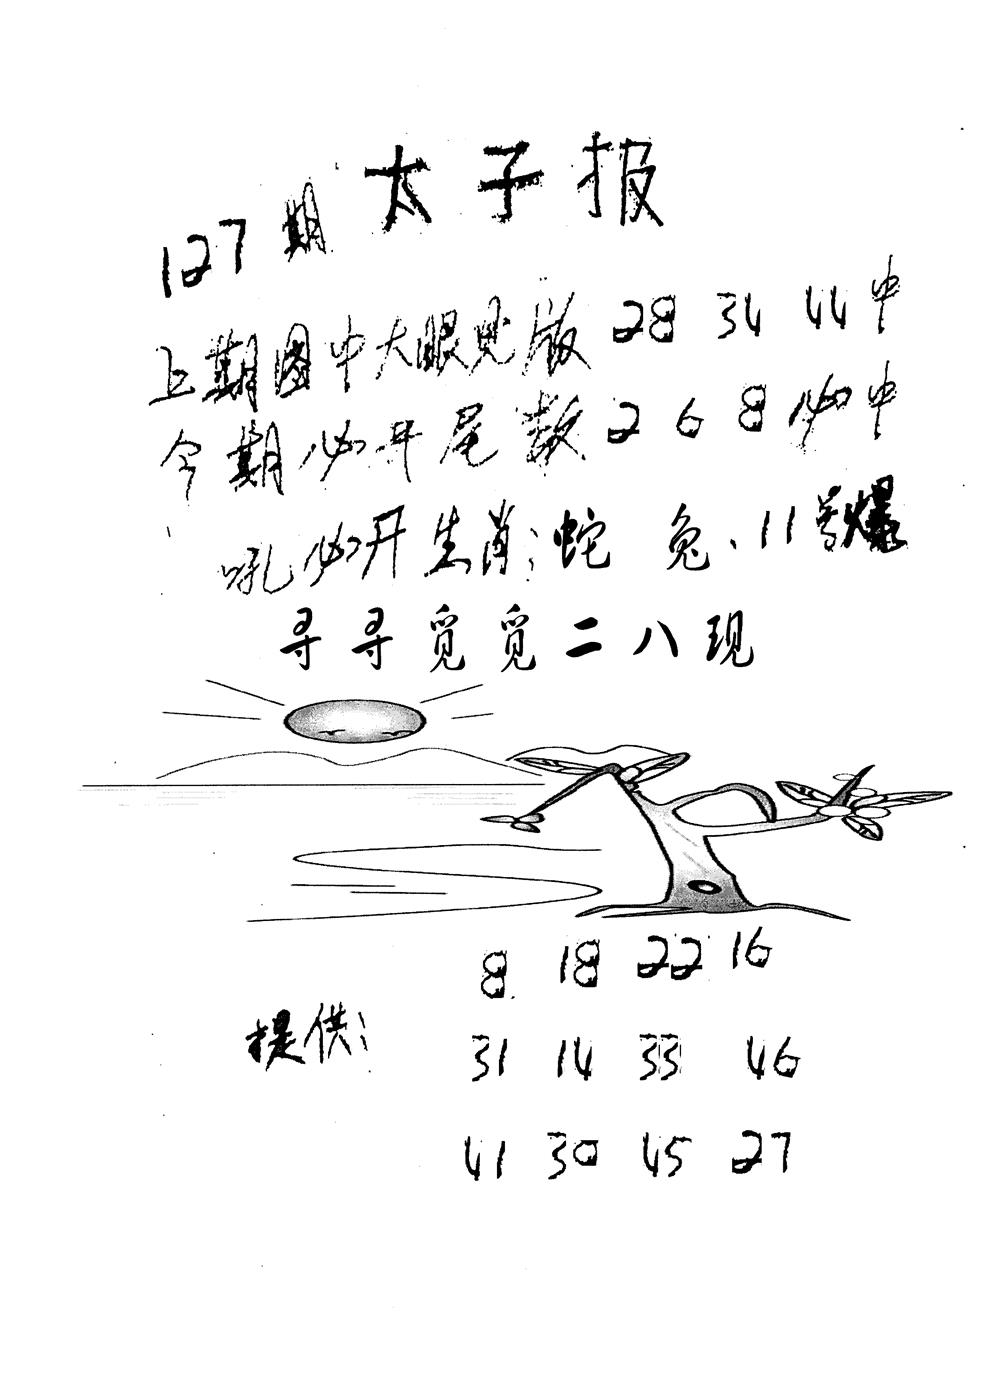 太子报
127期
上期图中大眼见版 28 34 44中
今期必开尾数 2 6 8必中
吼必开生肖:蛇 兔、11号爆
寻寻觅觅二八现
8 18 22 16
提供:
31 14 33 46
41 30 45 27